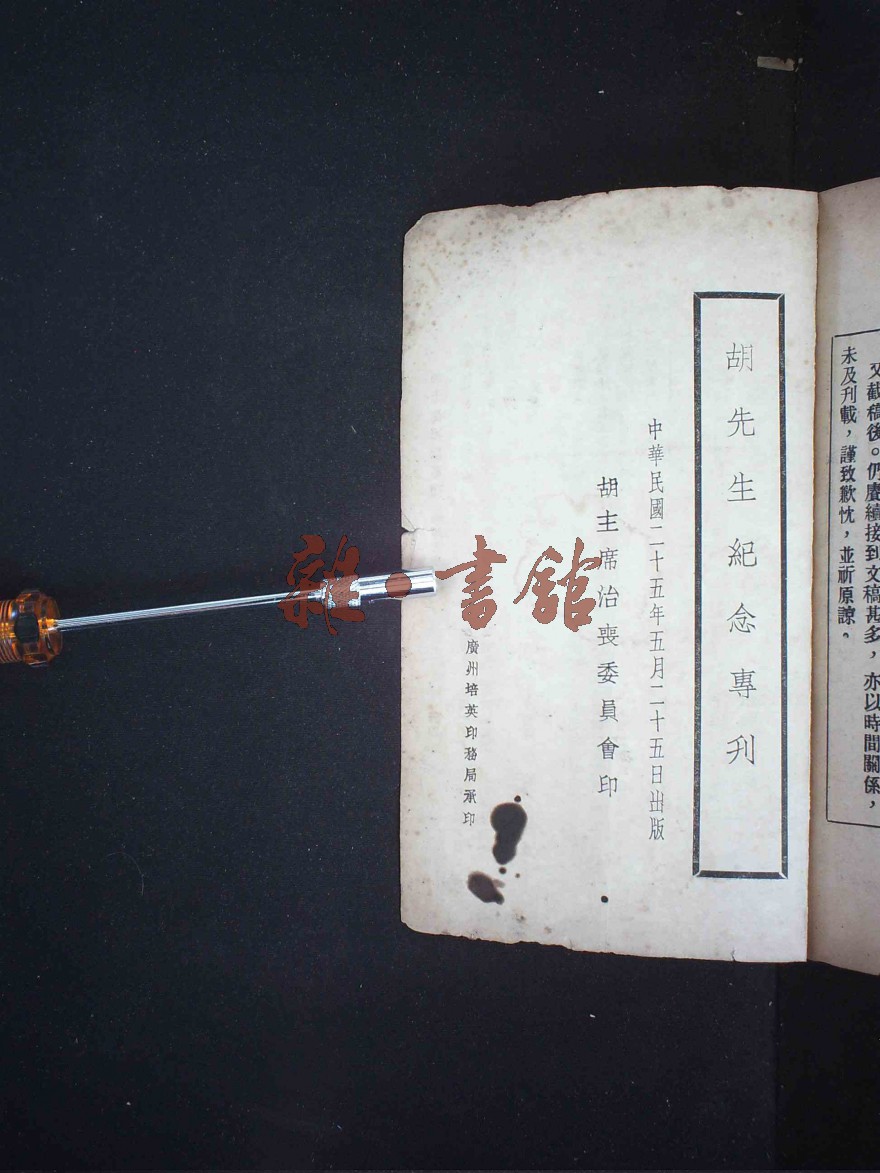 又截稿後。仍賡續接到文稿甚多，亦以時間關係，
未及刊載，謹致歉忱，並祈原諒。
胡先生紀念專刊
中華民國二十五年五月二十五日出版
胡主席治喪委員會印
廣州培英印務局承印
雜·書館